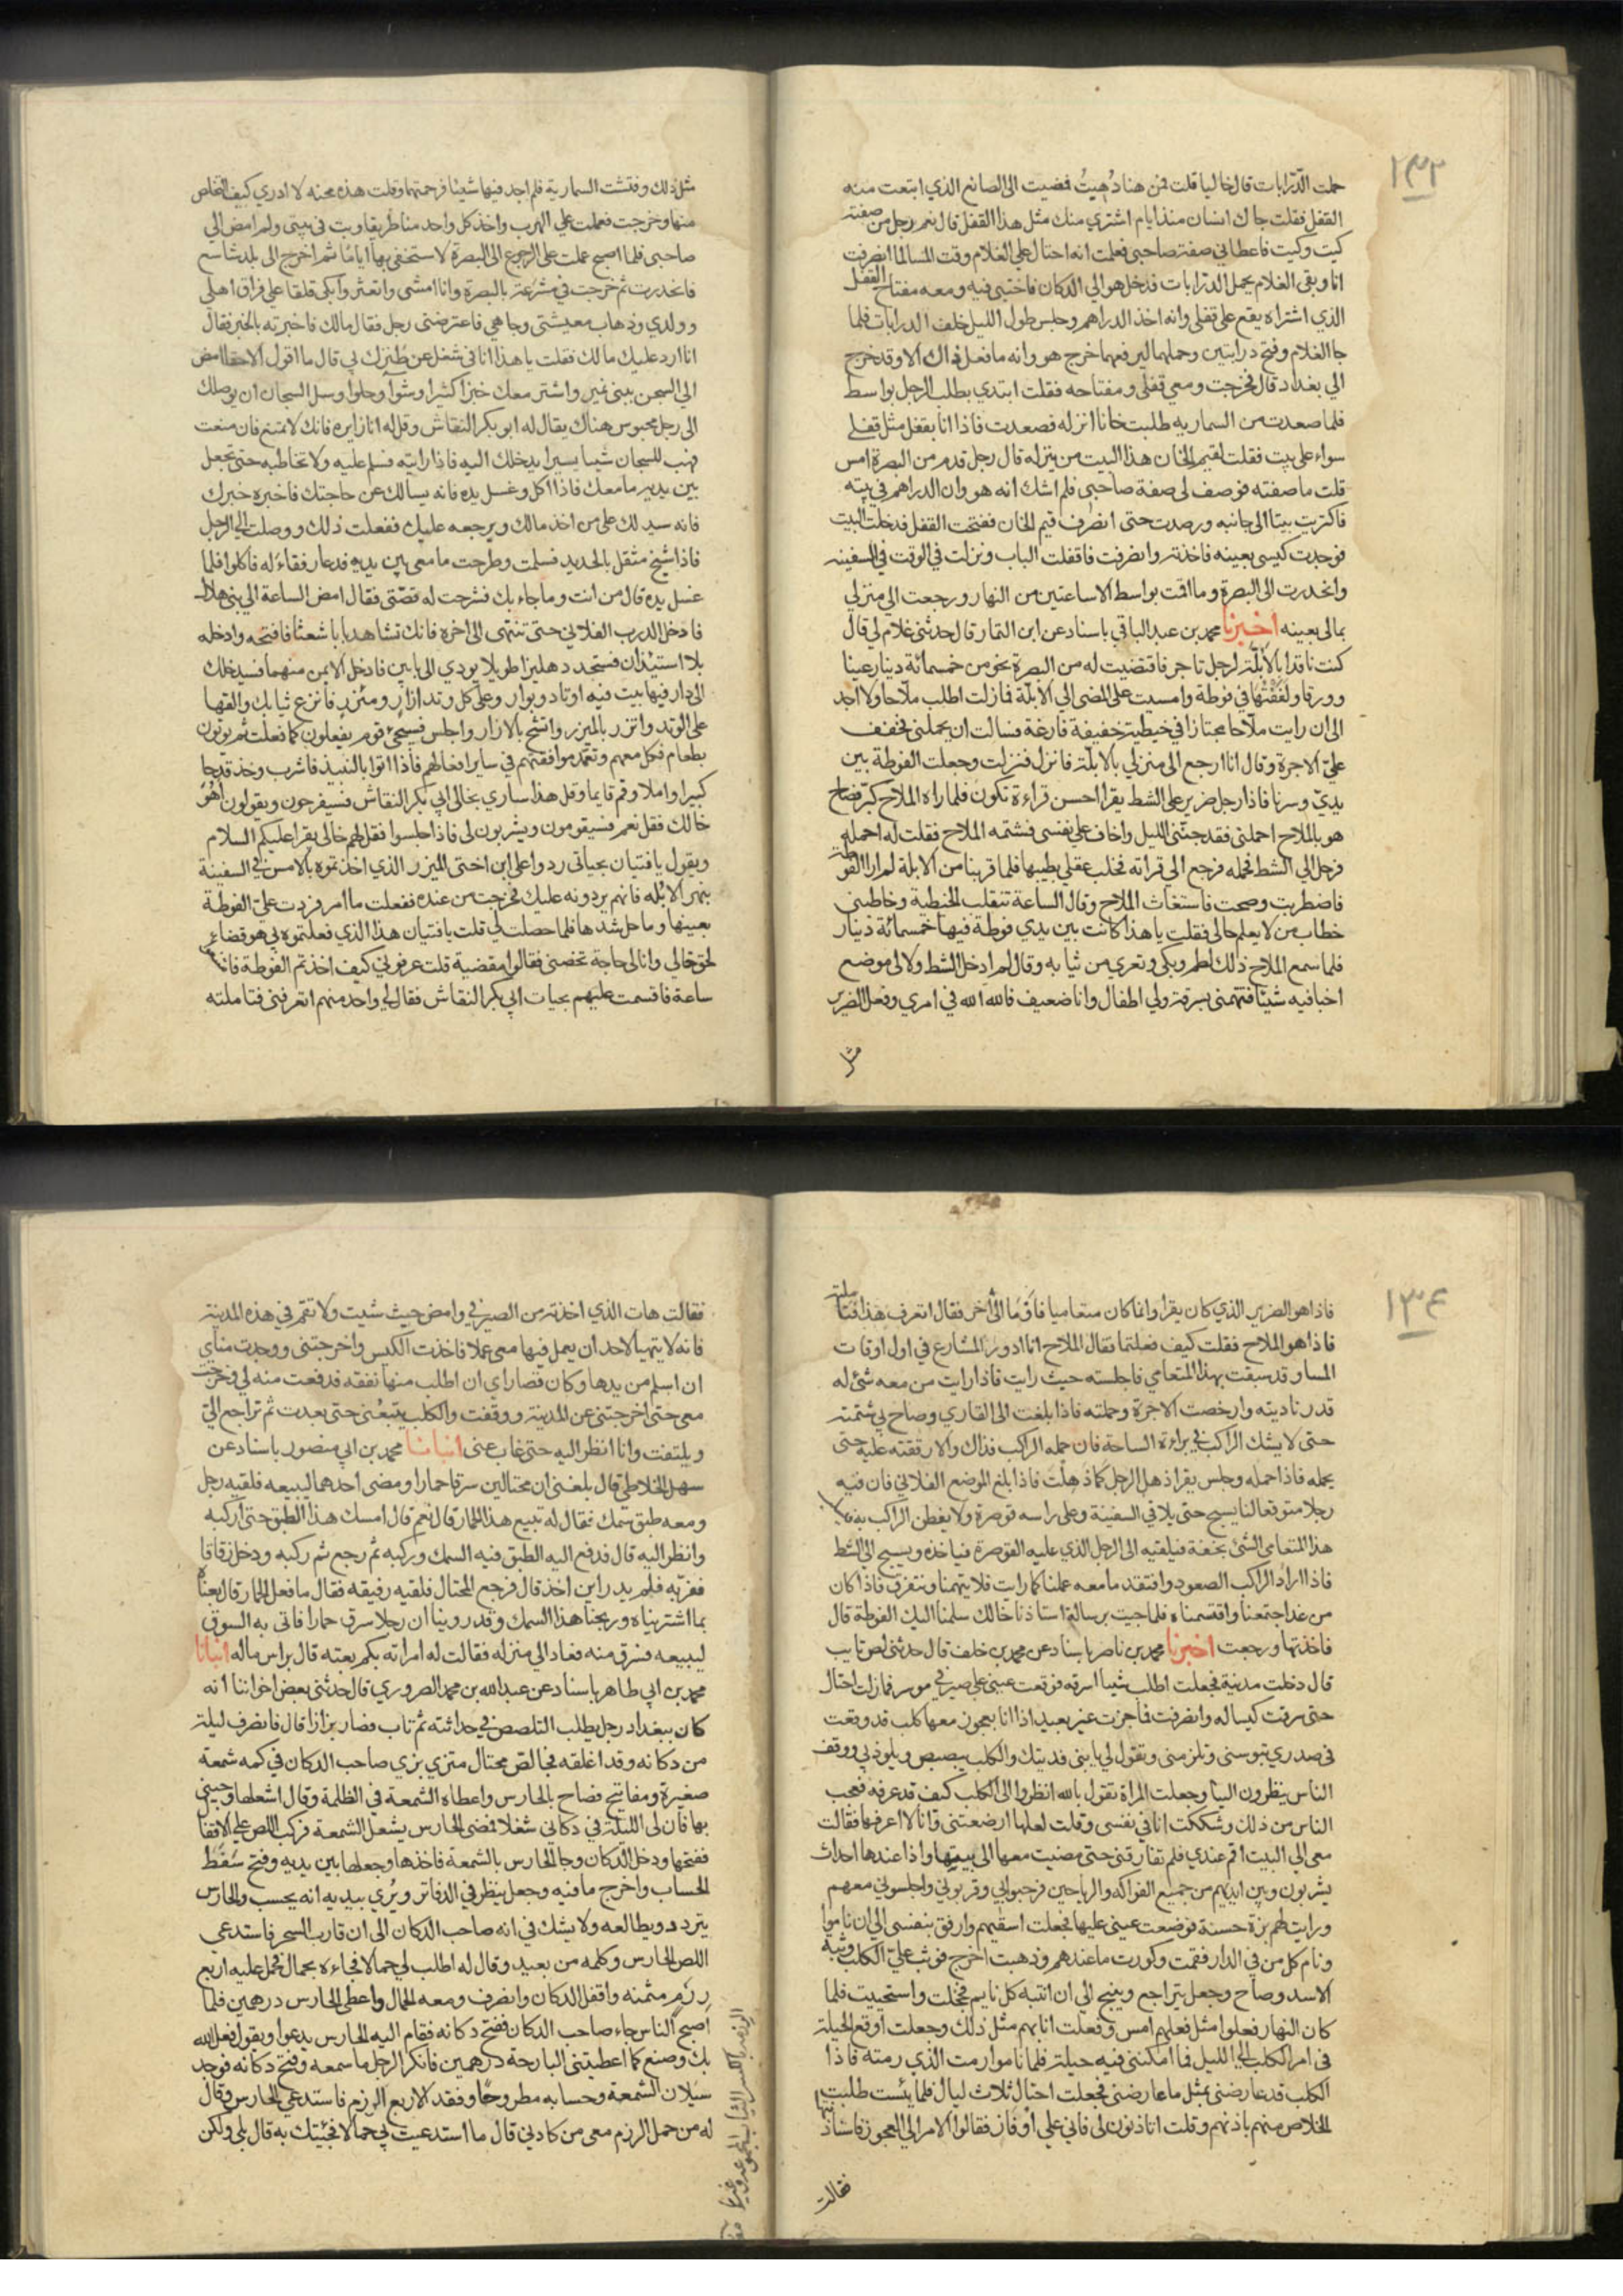 ١٣٣
حملت الدّرابات قال خاليا قلت فمن هنا دُهيتُ فمضيت الى الصانع الذي ابتعت منه
القفل فقلت جاك انسان منذ ايام اشترى منك مثل هذا القفل قال نعم رجل من صفته
كيت وكيت فاعطاني صفة صاحبي فعلمت انه احتال علي الغلام وقت المسا لما انصرفت
انا وبقى الغلام يحمل الدرابات فدخل هو الي الدكان فاختبى فيه ومعه مفتاح القفل
الذي اشتراه يقع على قفلى وانه اخذ الدراهم وجلس طول الليل خلف الدرابات فلما
جا الغلام وفتح درابتين وحملهما ليرفعهما خرج هو وانه ما فعل ذاك الا وقد خرج
الي بغداد قال فخرجت ومعي قفلى ومفتاحه فقلت ابتدي بطلب الرجل بواسط
فلما صعدت من السماريه طلبت خانا انزله فصعدت فاذا انا بقفل مثل قفلي
سواء على بيت فقلت لقيم الخان هذا البيت من ينزله قال رجل قدم من البصرة امس
قلت ما صفته فوصف لى صفة صاحبي فلم اشك انه هو وان الدراهم في بيته
فاكتريت بيتا الى جانبه ورصدت حتى انصرف قيم الخان ففتحت القفل فدخلت البيت
فوجدت كيسى بعينه فاخذته وانصرفت فاقفلت الباب ونزلت في الوقت في السفينه
وانحدرت الى البصرة وما اقمت بواسط الا ساعتين من النهار ورجعت الي منزلي
بمالى بعينه اخبرنا محمد بن عبد الباقي باسناد عن ابن التمار قال حدثني غلام لي قال
كنت ناقدا بالأبلّة لرجل تاجر فاقتضيت له من البصرة نحو من خمسمائة دينار عينا
وورقا ولففتها في فوطة وامسيت على المضى الي الابلّة فما زلت اطلب ملّاحا ولا اجد
الى ان رايت ملّاحا مجتازا في خيطية خفيفة فارغة فسالت ان يحملنى فخفف
عليّ الاجرة وقال انا ارجع الى منزلي بالابلّة فانزل فنزلت وجعلت الفوطة بين
يديّ وسرنا فاذا رجل ضرير على الشط يقرا احسن قراءة تكون فلما راه الملاح كبّر فصاح
هو بالملاح احملنى فقد جنّنى الليل واخاف على نفسى فشتمه الملاح فقلت له احمله
فدخل الي الشط فحمله فرجع الى قراته فخلب عقلي بطيبها فلما قربنا من الابلة لم ار الفوطة
فاضطربت وصحت فاستغاث الملاح وقال الساعة تنقلب الخيطية وخاطبنى
خطاب من لا يعلم حالى فقلت يا هذا كانت بين يدي فوطة فيها خمسمائة دينار
فلما سمع الملاح ذلك لطم وبكى وتعرى من ثيابه وقال لم ادخل الشط ولا لى موضع
اخبا فيه شيئا فتتهمنى بسرقة ولي اطفال وانا ضعيف فالله الله في امري وفعل الضرير
مثل
مثل ذلك وفتشت السمارية فلم اجد فيها شيئا فرحمتهما وقلت هذه محنه لا ادري كيف التخلص
منها وخرجت فعملت علي الهرب واخذ كل واحد منا طريقا وبت في بيتى ولم امض الي
صاحبى فلما اصبح عملت على الرجوع الى البصرة لا ستخفى بها اياما ثم اخرج الى بلد شاسع
فانحدرت ثم خرجت في مشرعة بالبصرة وانا امشى واتعثر وابكى قلقا علي فراق اهلي
وولدي وذهاب معيشتى وجاهي فاعترضنى رجل فقال مالك فاخبرته بالخبر فقال
انا ارد عليك مالك فقلت يا هذا انا في شغل عن طنزك بي قال ما اقول الا حقا امض
الي السجن ببني نمير واشتر معك خبزا كثيرا وشوآ وحلوا وسل السجان ان يوصلك
الى رجل محبوس هناك يقال له ابو بكر النقاش وقل له انا زايره فانك لا تمنع فان منعت
فهب للسجان شيا يسيرا يدخلك اليه فاذا رايته فسلم عليه ولا تخاطبه حتى تجعل
بين يديه ما معك فاذا اكل وغسل يده فانه يسالك عن حاجتك فاخبره خبرك
فانه سيدلك على من اخذ مالك ويرجعه عليك ففعلت ذلك ووصلت الي الرجل
فاذا شيخ مثقل بالحديد فسلمت وطرحت ما معى بين يديه فدعا رفقاءَ له فاكلوا فلما
غسل يده قال من انت وما جاء بك فشرحت له قصّتى فقال امض الساعة الي بنى هلال
فادخل الدرب الفلاني حتى تنتهى الى اخره فانك تشاهد بابا شعثا فافتحه وادخله
بلا استئذان فستجد دهليزا طويلا يودي الى بابين فادخل الايمن منهما فسيدخلك
الى دار فيها بيت فيه اوتاد وبوار وعلى كل وتد ازار ومئزر فانزع ثيابك والقها
على الوتد واتزر بالميزر واتشح بالازار واجلس فسيجئ قوم يفعلون كما فعلت ثم يوتون
بطعام فكل معهم وتعمّد موافقتهم في ساير افعالهم فاذا اتوا بالنبيذ فاشرب وخذ قدحا
كبيرا واملاه وقم قايما وقل هذا ساري بخالى ابي بكر النقاش فسيفرحون ويقولون أهُو
خالك فقل نعم فسيقومون ويشربون لى فاذا جلسوا فقل لهم خالى يقرا عليكم السلام
ويقول يا فتيان بحياتى ردوا على ابن اختى الميزر الذي اخذتموه بالامس في السفينة
بنهر الابُله فانهم يردونه عليك فخرجت من عنده ففعلت ما امر فردت عليّ الفوطة
بعينها وما حل شدها فلما حصلت لي قلت يا فتيان هذا الذي فعلتموه بي هو قضاء
لحق خالى وانا لى حاجة تخصنى فقالوا مقضية قلت عرفوني كيف اخذتم الفوطة فامتنعوا
ساعة فاقسمت عليهم بحيات ابي بكر النقاش فقال لي واحد منهم اتعرفنى فتاملته
١٣٤
فاذا هو الضرير الذي كان يقرا وانما كان متعاميا فاومَا الى اخر فقال اتعرف هذا فتاملته
فاذا هو الملاح فقلت كيف فعلتما فقال الملاح انا ادور المشارع في اول اوقات
المسا وقد سبقت بهذا المتعامي فاجلسته حيث رايت فاذا رايت من معه شئ له
قدر ناديته وارخصت الاجرة وحملته فاذا بلغت الى القاري وصاح بي شتمته
حتى لا يشك الراكب في براءة الساحة فان حمله الراكب فذاك والا رققته عليه حتى
يحمله فاذا حمله وجلس يقرا ذهل الرجل كما ذهلت فاذا بلغ الموضع الفلاني فان فيه
رجلا متوقعا لنا يسبح حتى يلاقي السفينة وعلى راسه قوصرة ولا يفطن الراكب به فيأخذ
هذا المتعامى الشئ بخفة فيلقيه الى الرجل الذي عليه القوصرة فياخذه ويسبح الي الشط
فاذا اراد الراكب الصعود وافتقد ما معه عملنا كما رايت فلا يتهمنا ونتفرق فاذا كان
من غد اجتمعنا واقتسمناه فلما جيت برسالة استاذنا خالك سلمنا اليك الفوطة قال
فاخذتها ورجعت اخبرنا محمد بن ناصر باسناد عن محمد بن خلف قال حدثنى لص تايب
قال دخلت مدينة فجعلت اطلب شيا اسرقه فوقعت عينى على صيرفي موسر فما زلت احتال
حتى سرقت كيسا له وانصرفت فاجزت غير بعيد اذا انا بعجوز معها كلب قد وقعت
في صدري تبوسنى وتلزمنى وتقول لي يا بنى فديتك والكلب يبصبص ويلوذ بي ووقف
الناس ينظرون الينا وجعلت المراة تقول بالله انظروا الى الكلب كيف قد عرفه فعجب
الناس من ذلك وشككت انا في نفسى وقلت لعلها ارضعتنى وانا لا اعرفها فقالت
معى الي البيت اقم عندي فلم تفارقنى حتى مضيت معها الى بيتها واذا عندها احداث
يشربون وبين ايديهم من جميع الفواكه والرياحين فرحبوا بي وقربوني واجلسوني معهم
ورايت لهم بزة حسنة فوضعت عينى عليها فجعلت اسقيهم وارفق بنفسى الى ان ناموا
ونام كل من في الدار فقمت وكورت ما عندهم وذهبت اخرج فوثب عليّ الكلب وثبة
الاسد وصاح وجعل يتراجع وينبح الي ان انتبه كل نايم فخجلت واستحييت فلما
كان النهار فعلوا مثل فعلهم امس وفعلت انا بهم مثل ذلك وجعلت اوقع الحيلة
في امر الكلب الي الليل فما امكننى فيه حيلة فلما ناموا رمت الذي رمته فاذا
الكلب قد عارضنى بمثل ما عارضنى فجعلت احتال ثلاث ليال فلما يئست طلبت
الخلاص منهم باذنهم وقلت اتاذنون لى فاني علي اوفاز فقالوا الامر الي العجوز فاستاذنتها
فقالت
فقالت هات الذي اخذته من الصيرفي وامض حيث شيت ولا تقم في هذه المدينة
فانه لا يتهيا لاحد ان يعمل فيها معى عملا فاخذت الكيس واخرجتنى ووجدت مناي
ان اسلم من يدها وكان قصاراي ان اطلب منها نفقه فدفعت منه لي وخرجت
معى حتى اخرجتنى عن المدينة ووقفت والكلب يتبعُنى حتى بعدت ثم تراجع اليّ
ويلتفت وانا انظر اليه حتى غاب عنى انبانا محمد بن ابي منصور باسناد عن
سهل الخلاطي قال بلغنى ان محتالين سرقا حمارا ومضى احدهما ليبيعه فلقيه رجل
ومعه طبق سمك فقال له تبيع هذا الحمار قال نعم قال امسك هذا الطبق حتى اركبه
وانظر اليه قال فدفع اليه الطبق فيه السمك وركبه ثم رجع ثم ركبه ودخل زقاقا
ففرّ به فلم يدر اين اخذ قال فرجع المحتال فلقيه رفيقه فقال ما فعل الحمار قال بعناه
بما اشتريناه وربحنا هذا السمك وقد روينا ان رجلا سرق حمارا فاتى به السوق
ليبيعه فسرق منه فعاد الي منزله فقالت له امراته بكم بعته قال براس ماله انبانا
محمد بن ابي طاهر باسناد عن عبد الله بن محمد الصروري قال حدثنى بعض اخواننا انه
كان ببغداد رجل يطلب التلصص في حداثته ثم تاب فصار بزازا قال فانصرف ليلة
من دكانه وقد اغلقه فجا لص محتال متزي بزي صاحب الدكان في كمه شمعة
صغيرة ومفاتيح فصاح بالحارس واعطاه الشمعة في الظلمة وقال اشعلها وجيني
بها فان لى الليلة في دكاني شغلا فمضى الحارس يشعل الشمعة فركب اللص علي الاقفال
ففتحها ودخل الدكان وجا الحارس بالشمعة فاخذها وجعلها بين يديه وفتح سَفط
الحساب واخرج ما فيه وجعل ينظر في الدفاتر ويُري بيديه انه يحسب والحارس
يتردد ويطالعه ولا يشك في انه صاحب الدكان الى ان قارب السحر فاستدعى
اللص الحارس وكلمه من بعيد وقال له اطلب لي حمالا فجاءه بحمال فحمل عليه اربع
رزم مثمنه واقفل الدكان وانصرف ومعه الحمال واعطى الحارس درهمين فلما
اصبح الناس جاء صاحب الدكان ففتح دكانه فقام اليه الحارس يدعوا ويقول فعل الله
بك وصنع كما اعطيتنى البارحة درهمين فانكر الرجل ما سمعه وفتح دكانه فوجد
سَيلان الشمعة وحسابه مطروحًا وفقد الاربع الرزم فاستدعى الحارس وقال
له من حمل الرزم معى من كادني قال ما استدعيت لي حمالا فجئتك به قال بلى ولكن